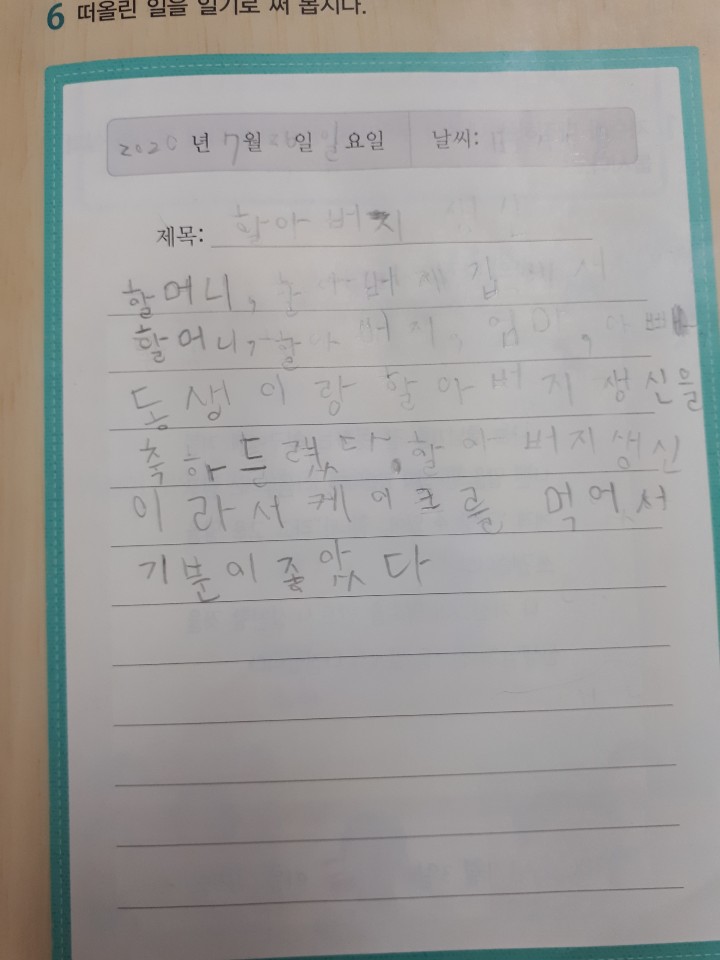 6 떠올린 일을 일기로 써 봅시다.
2020 년 7월 26일 일요일 날씨:
제목: 할아버지 생신
할머니, 할아버지 집에서
할어니, 할아버지, 엄마, 아빠
동생이랑 할아버지 생신을
축하들렸다. 할아버지생신
이라서 케이크를 먹어서
기분이 좋았다